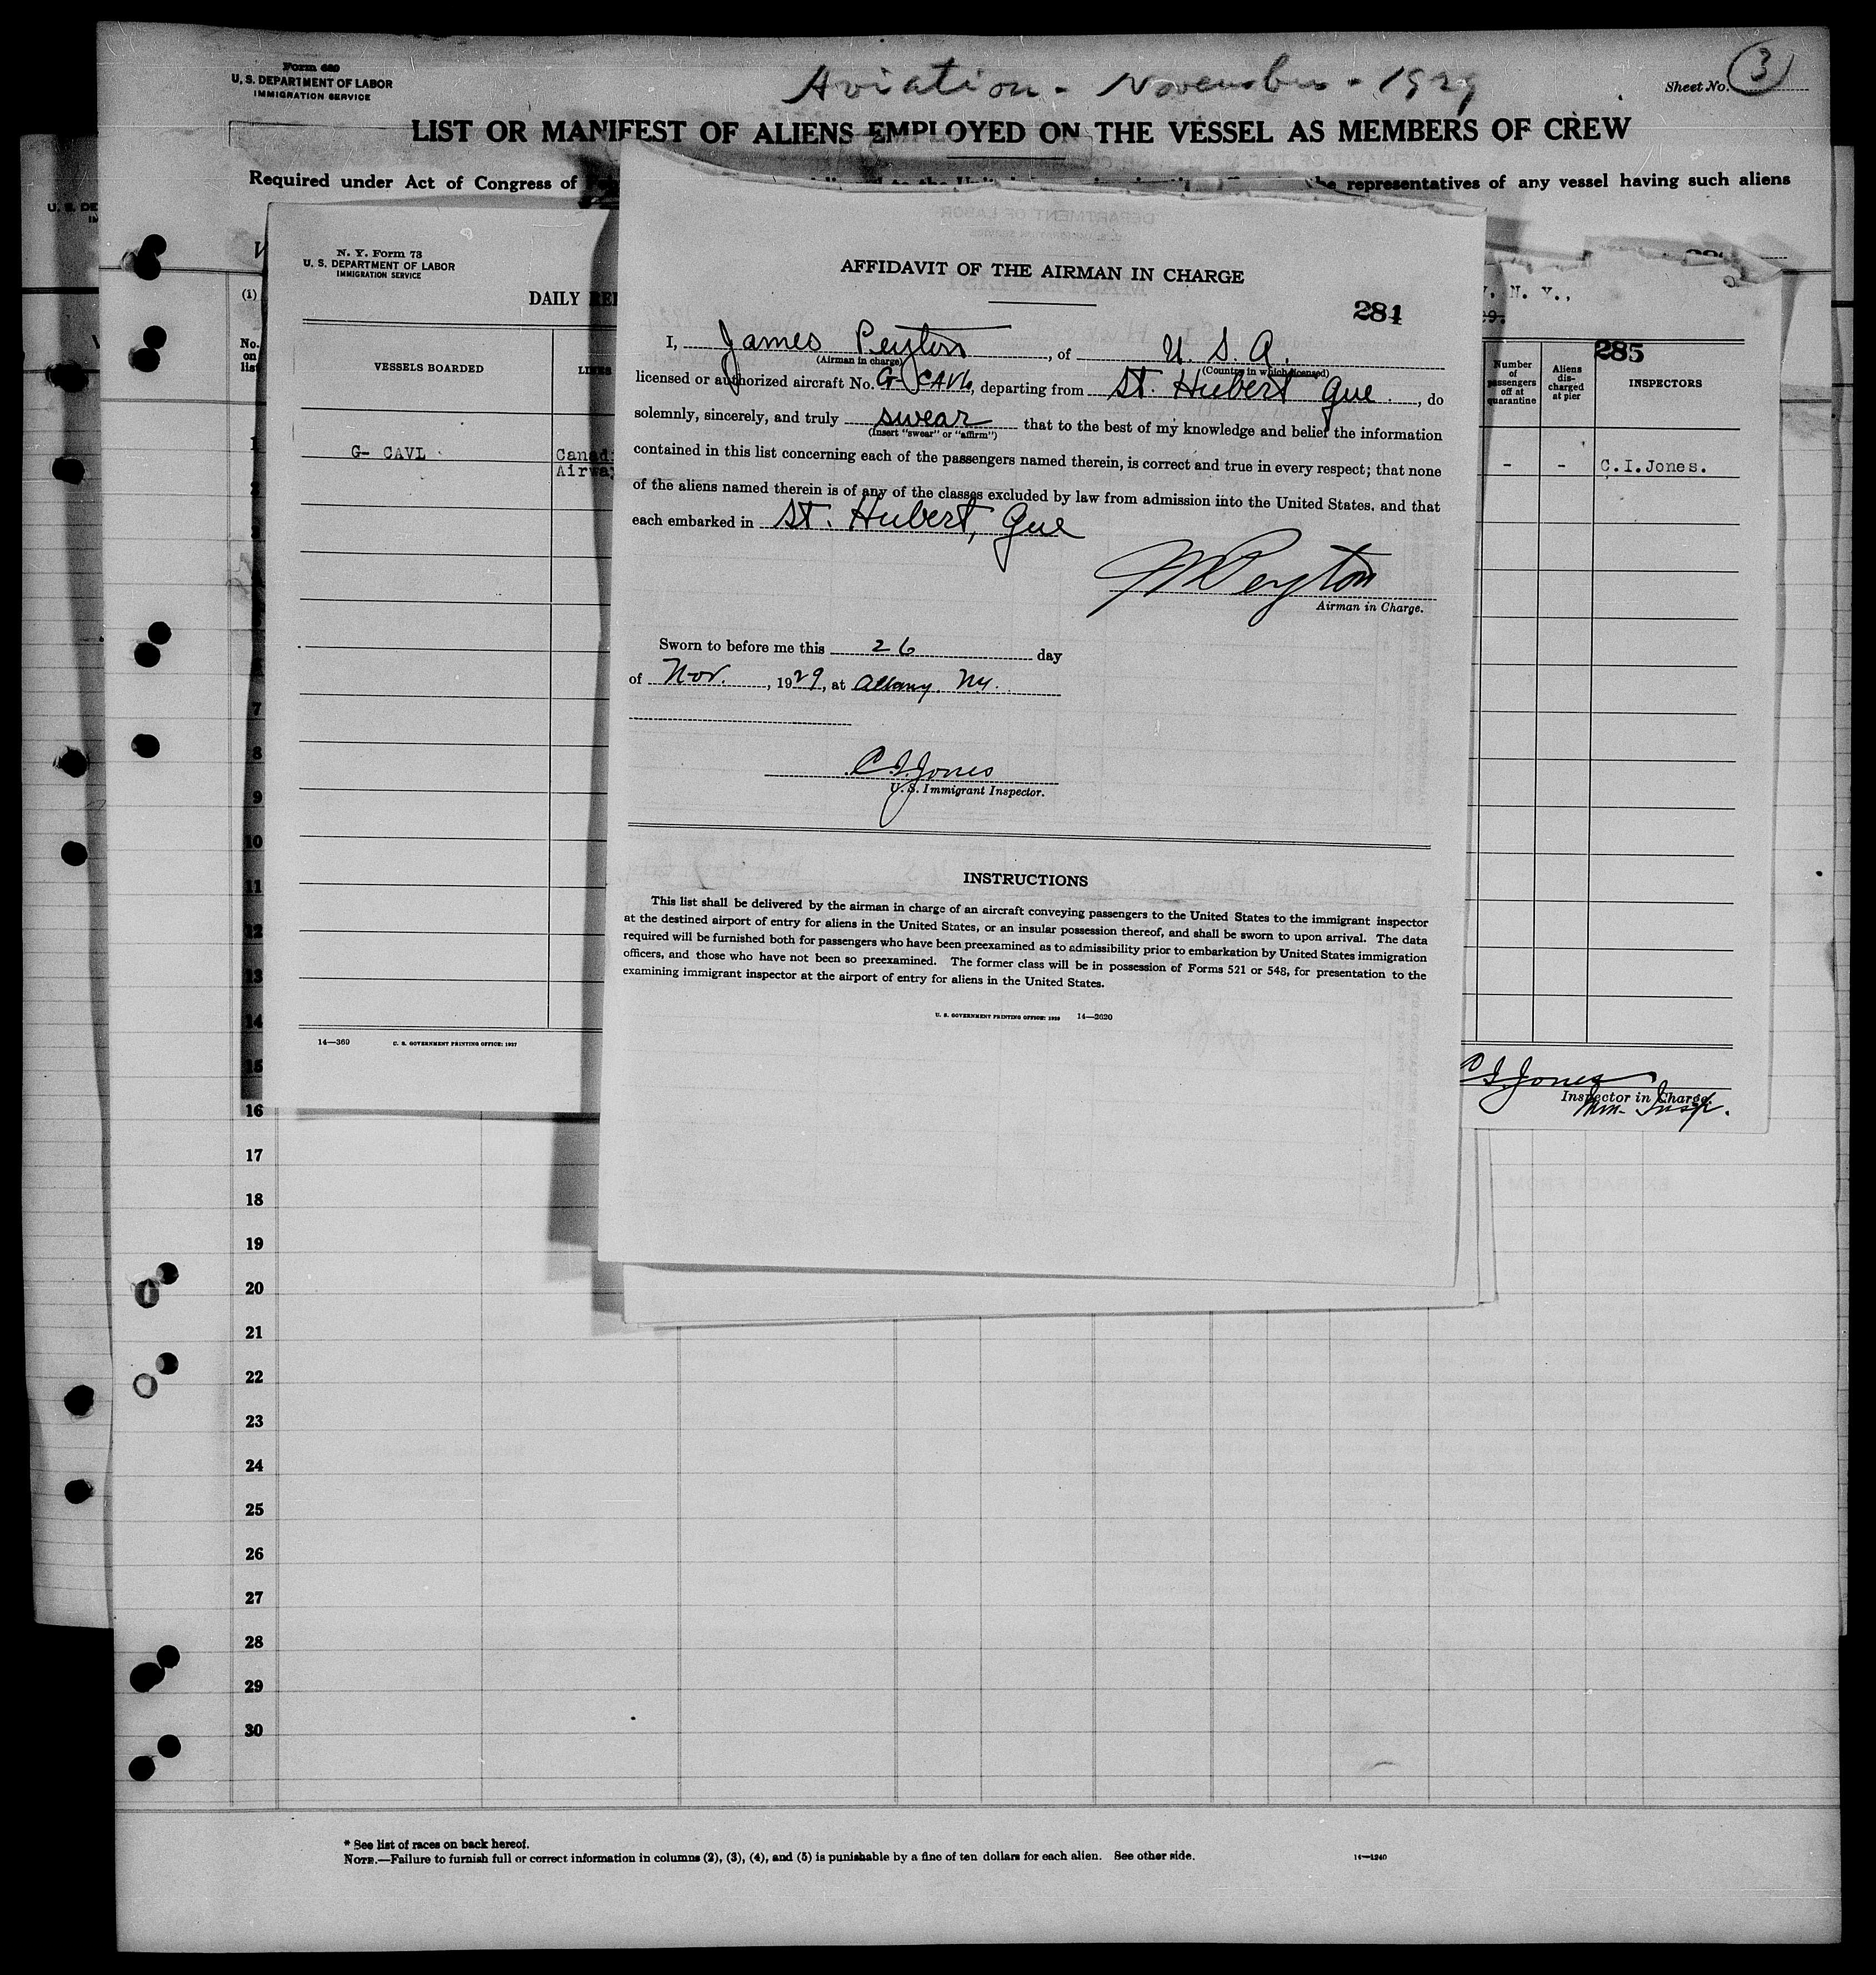 Form 689
U. S. DEPARTMENT OF LABOR
IMMIGRATION SERVICE
Aviation - November - 1929
Sheet No. 3
LIST OR MANIFEST OF ALIENS EMPLOYED ON THE VESSEL AS MEMBERS OF CREW
Required under Act of Congress of
representatives of any vessel having such aliens
N. Y. Form 73
U. S. DEPARTMENT OF LABOR
IMMIGRATION SERVICE
DAILY
VESSELS BOARDED
G- CAVL
14—369 U. S. GOVERNMENT PRINTING OFFICE: 1927
AFFIDAVIT OF THE AIRMAN IN CHARGE
284
I, James Peyton, of U. S. A.
(Airman in charge) (Country in which licensed)
licensed or authorized aircraft No. G-CAVL, departing from St. Hubert Que., do
solemnly, sincerely, and truly swear that to the best of my knowledge and belief the information
(Insert "swear" or "affirm")
contained in this list concerning each of the passengers named therein, is correct and true in every respect; that none
of the aliens named therein is of any of the classes excluded by law from admission into the United States, and that
each embarked in St. Hubert, Que
Peyton
Airman in Charge.
Sworn to before me this 26 day
of Nov., 1929, at Albany. NY.
C. I. Jones
U. S. Immigrant Inspector.
INSTRUCTIONS
This list shall be delivered by the airman in charge of an aircraft conveying passengers to the United States to the immigrant inspector
at the destined airport of entry for aliens in the United States, or an insular possession thereof, and shall be sworn to upon arrival. The data
required will be furnished both for passengers who have been preexamined as to admissibility prior to embarkation by United States immigration
officers, and those who have not been so preexamined. The former class will be in possession of Forms 521 or 548, for presentation to the
examining immigrant inspector at the airport of entry for aliens in the United States.
U. S. GOVERNMENT PRINTING OFFICE: 1929 14—2620
N. Y.,
285
Number
of
passengers
off at
quarantine
Aliens
dis-
charged
at pier
INSPECTORS
- - C.I.Jones.
C I Jones
Inspector in Charge.
Imm. Insp.
(1)
No.
on
list
1
2
3
7
8
9
10
11
12
13
14
15
16
17
18
19
20
21
22
23
24
25
26
27
28
29
30
* See list of races on back hereof.
NOTE.—Failure to furnish full or correct information in columns (2), (3), (4), and (5) is punishable by a fine of ten dollars for each alien. See other side.
14—1240